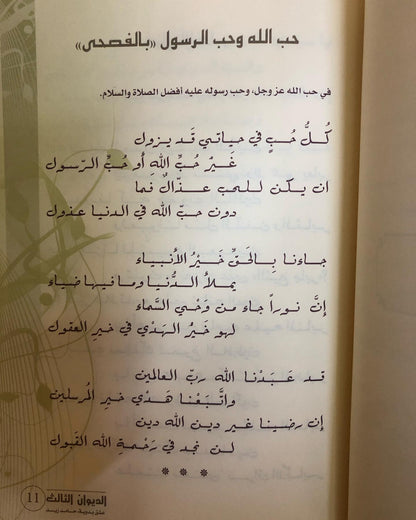 حب الله وحب الرسول «بالفصحى»
في حب الله عز وجل، وحب رسوله عليه أفضل الصلاة والسلام.
كُلُّ حُبٍّ في حياتي قَد يزول
غَيْرُ حُبِّ اللهِ أو حُبِّ الرّسول
ان يكُن للحب عذّالٌ فما
دون حبِّ الله في الدنيا عذول
جاءنا بِالحَقِّ خَيْرُ الأنبياء
يملأ الدُّنيا ومافيها ضياء
إنَّ نوراً جاء من وَحْيِ السَّماء
لهو خَيْرُ الهَدْي في خيرِ العقول
قد عَبَدْنا الله ربّ العالمين
واتَّبَعْنا هَدْيَ خيرِ المُرسلين
إن رضينا غير دين الله دين
لن نجد في رَحْمةِ الله القَبول
* * *
الديوان الثالث 11